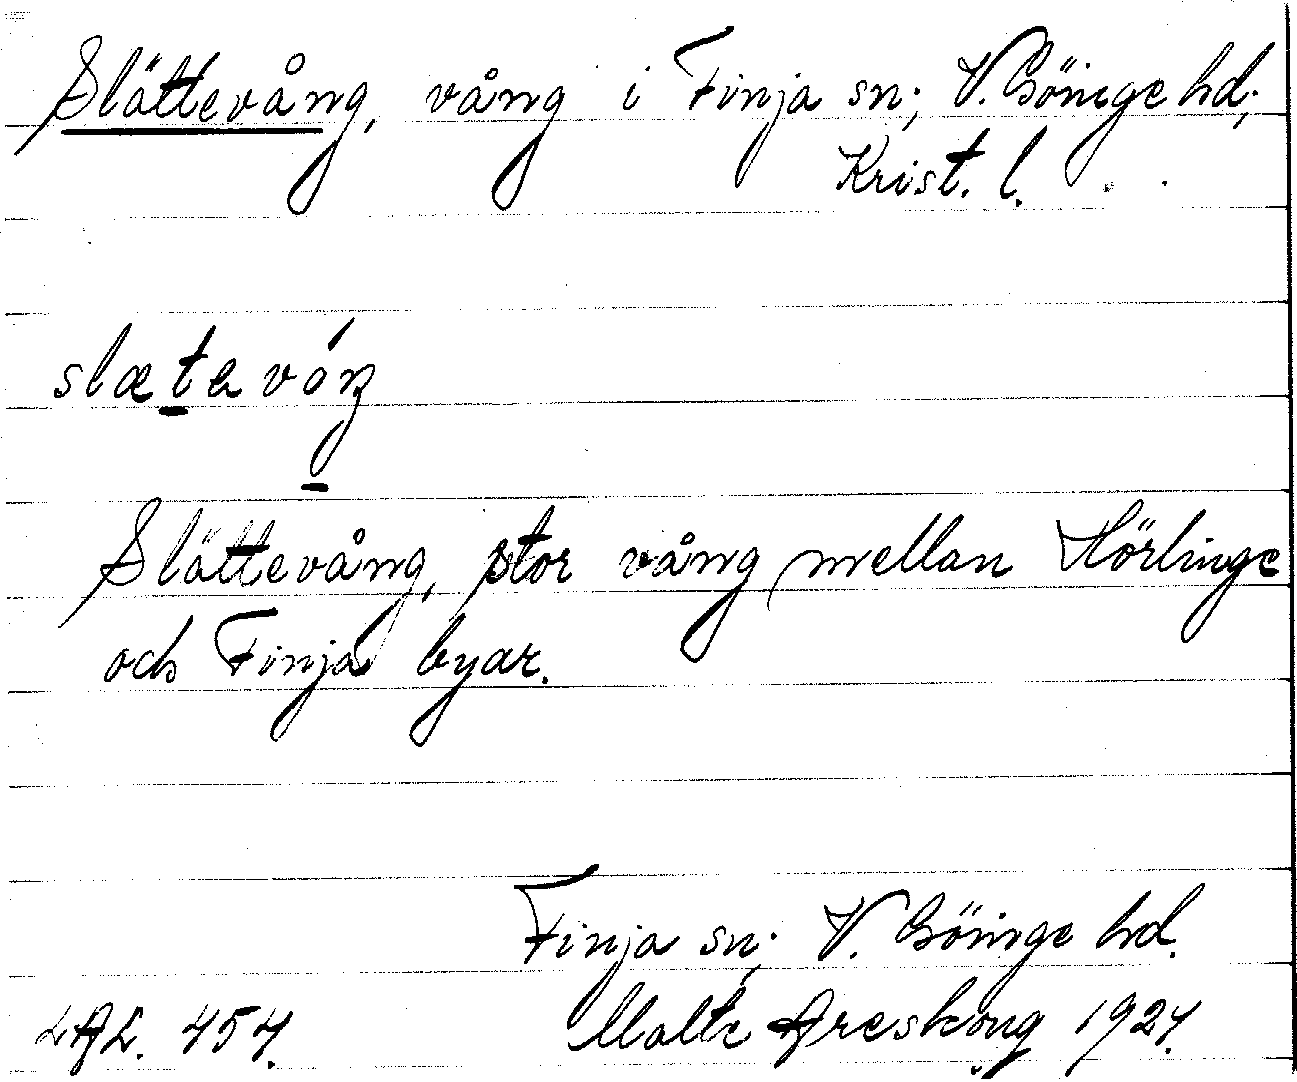 Slättevång, vång i Finja sn; V. Göinge hd;
Krist. l.
slætavóŋ
Slättevång, stor vång mellan Hörlinge
och Finja byar.
Finja sn; V. Göinge hd.
LAL. 454. Malte Areskoug 1924.